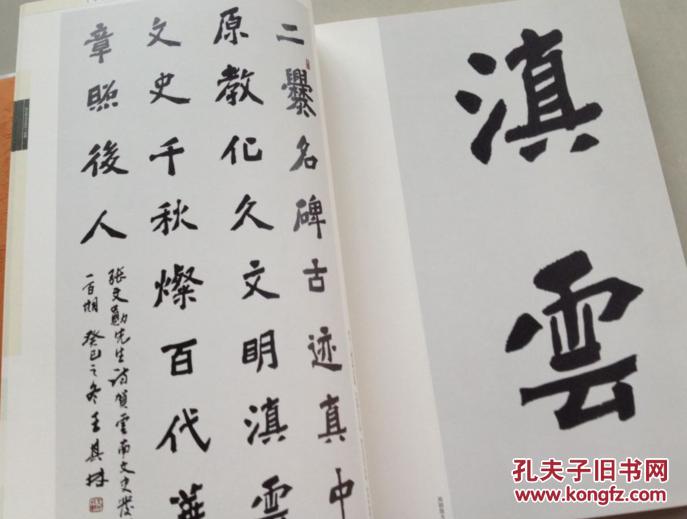 二爨名碑古迹真中
原教化久文明滇雲
文史千秋燦百代華
章照後人
張文勳先生诗賀雲南文史發
一百期 癸巳之冬 王其
滇雲
孔夫子旧书网
www.kongfz.com